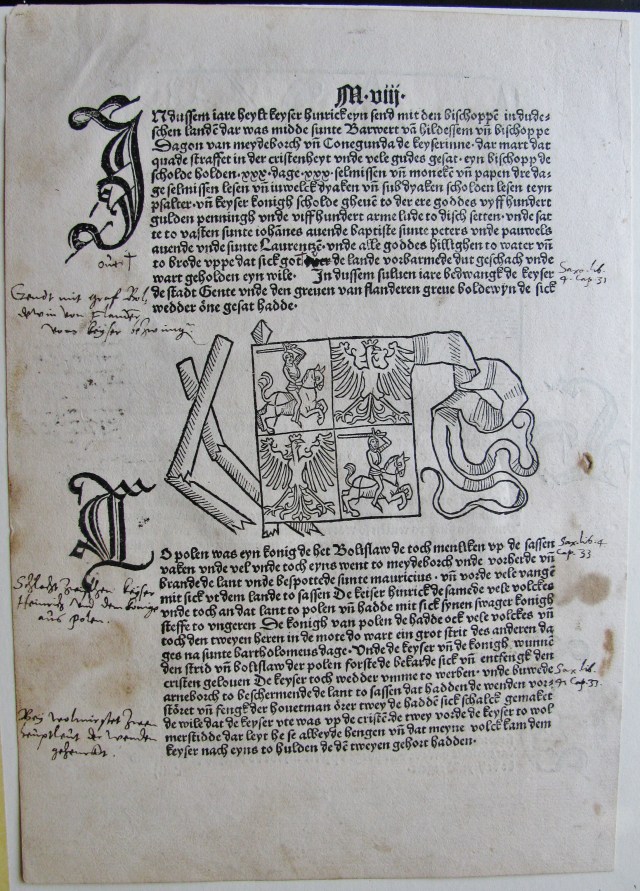 M·viij·
IN dussem iare heylt keyser hinrick eyn send mit den bischoppē in dude-
schen landē dar was midde sunte Barwert vā hildessem vñ bischoppe
Dagon van meydeborch vñ Conegunda de keyserinne· dar mart dat
quade straffet in der cristenheyt vnde vele gudes gesat· eyn bischopp de
scholde holden ·xxx· dage ·xxx· selmissen vñ moneke vñ papen dre da-
ge selmissen lesen vñ iuwelck dyaken vñ subdyaken scholden lesen teyn
psalter· vñ keyser konigh scholde gheuē to der ere goddes vyff hundert
gulden penningh vnde viff hundert arme lude to disch setten· vnde sat
te to vasten sunte iohānes auende baptiste sunte peters vnde pauwels
auende vnde sunte Laurentze· vnde alle goddes hillighen to water vñ
to brode vppe dat sick got de lande vorbarmede dut geschach vnde
wart geholden eyn wile· In dussem suluen iare bedwangk de keyser
de stadt Gente vnde den greuen van flanderen greue boldewyn de sick
wedder öne gesat hadde·
Sax. lib.
4. cap. 31
TO polen was eyn konig de het Bolislaw de toch menliken vp de sassen
vaken vnde vel vnde toch eyns went to meydeborch vnde vorherde vñ
brande de lant vnde bespottede sunte mauricius· vñ vorde vele vangē
mit sick vt dem lande to sassen De keiser hinrick de samede vele volckes
vnde toch an dat lant to polen vñ hadde mit sick synen swager konigh
steffe to vngeren De konigh van polen de hadde ock vele volckes vñ
toch den tweyen heren in de mote do wart ein grot strit des anderen da
ges na sunte bartholomeus dage· Vnde de keyser vñ de konigh wunnē
den strid vñ bolislaw der polen forste de bekarde sick vñ entfengk den
cristen gelouen De keyser toch wedder vmme to werben· vnde buwede
arneborch to beschermende de lant to sassen dat hadden de wenden vor
störet vñ fengk der houetman örer twey de hadden sick schalck gemaket
de wile dat de keyser vte was vp de cristē de twey vorde de keyser to wol
merstidde dar leyt he se albeyde hengen vñ dat meyne volck kam dem
keyser nach eyns to hulden de dē tweyen gehort hadden·
Sax. lib. 4
Cap. 33
Sax. lib.
4. Cap. 37.